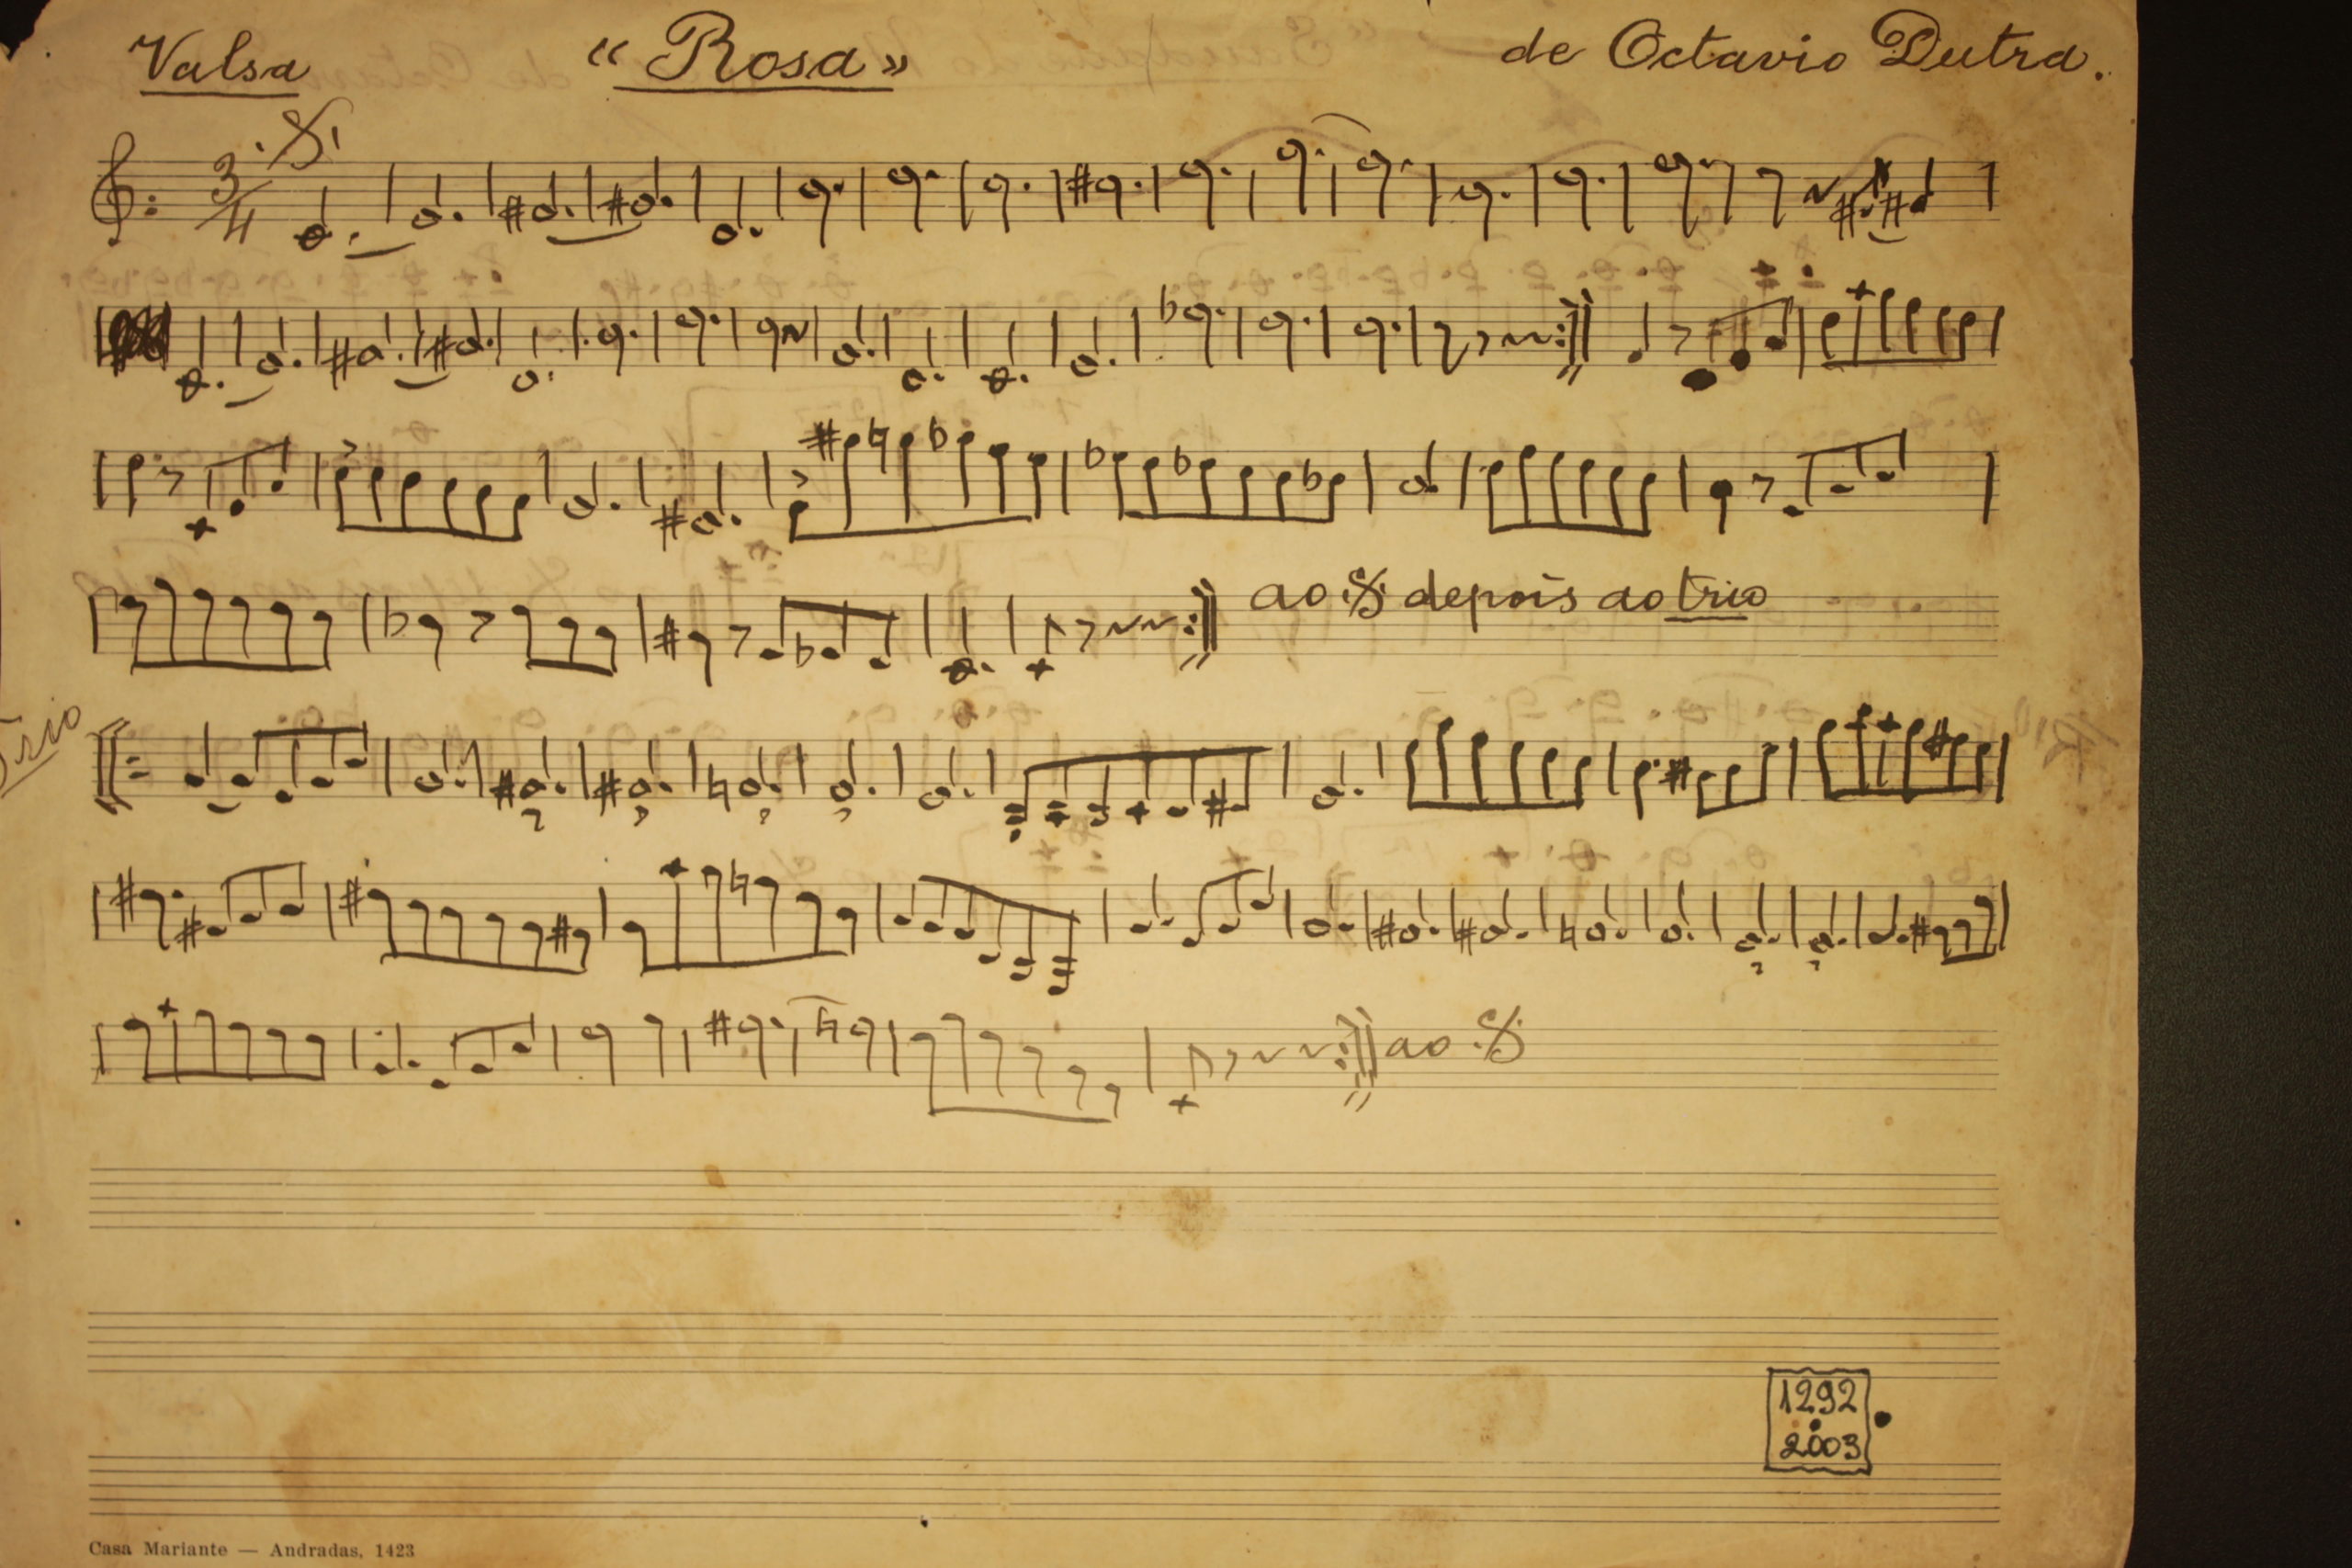 Valsa « Rosa » de Octavio Dutra.
3/4
ao 𝄋 depois ao trio
Trio
ao 𝄋
1292
2003
Casa Mariante — Andradas, 1423